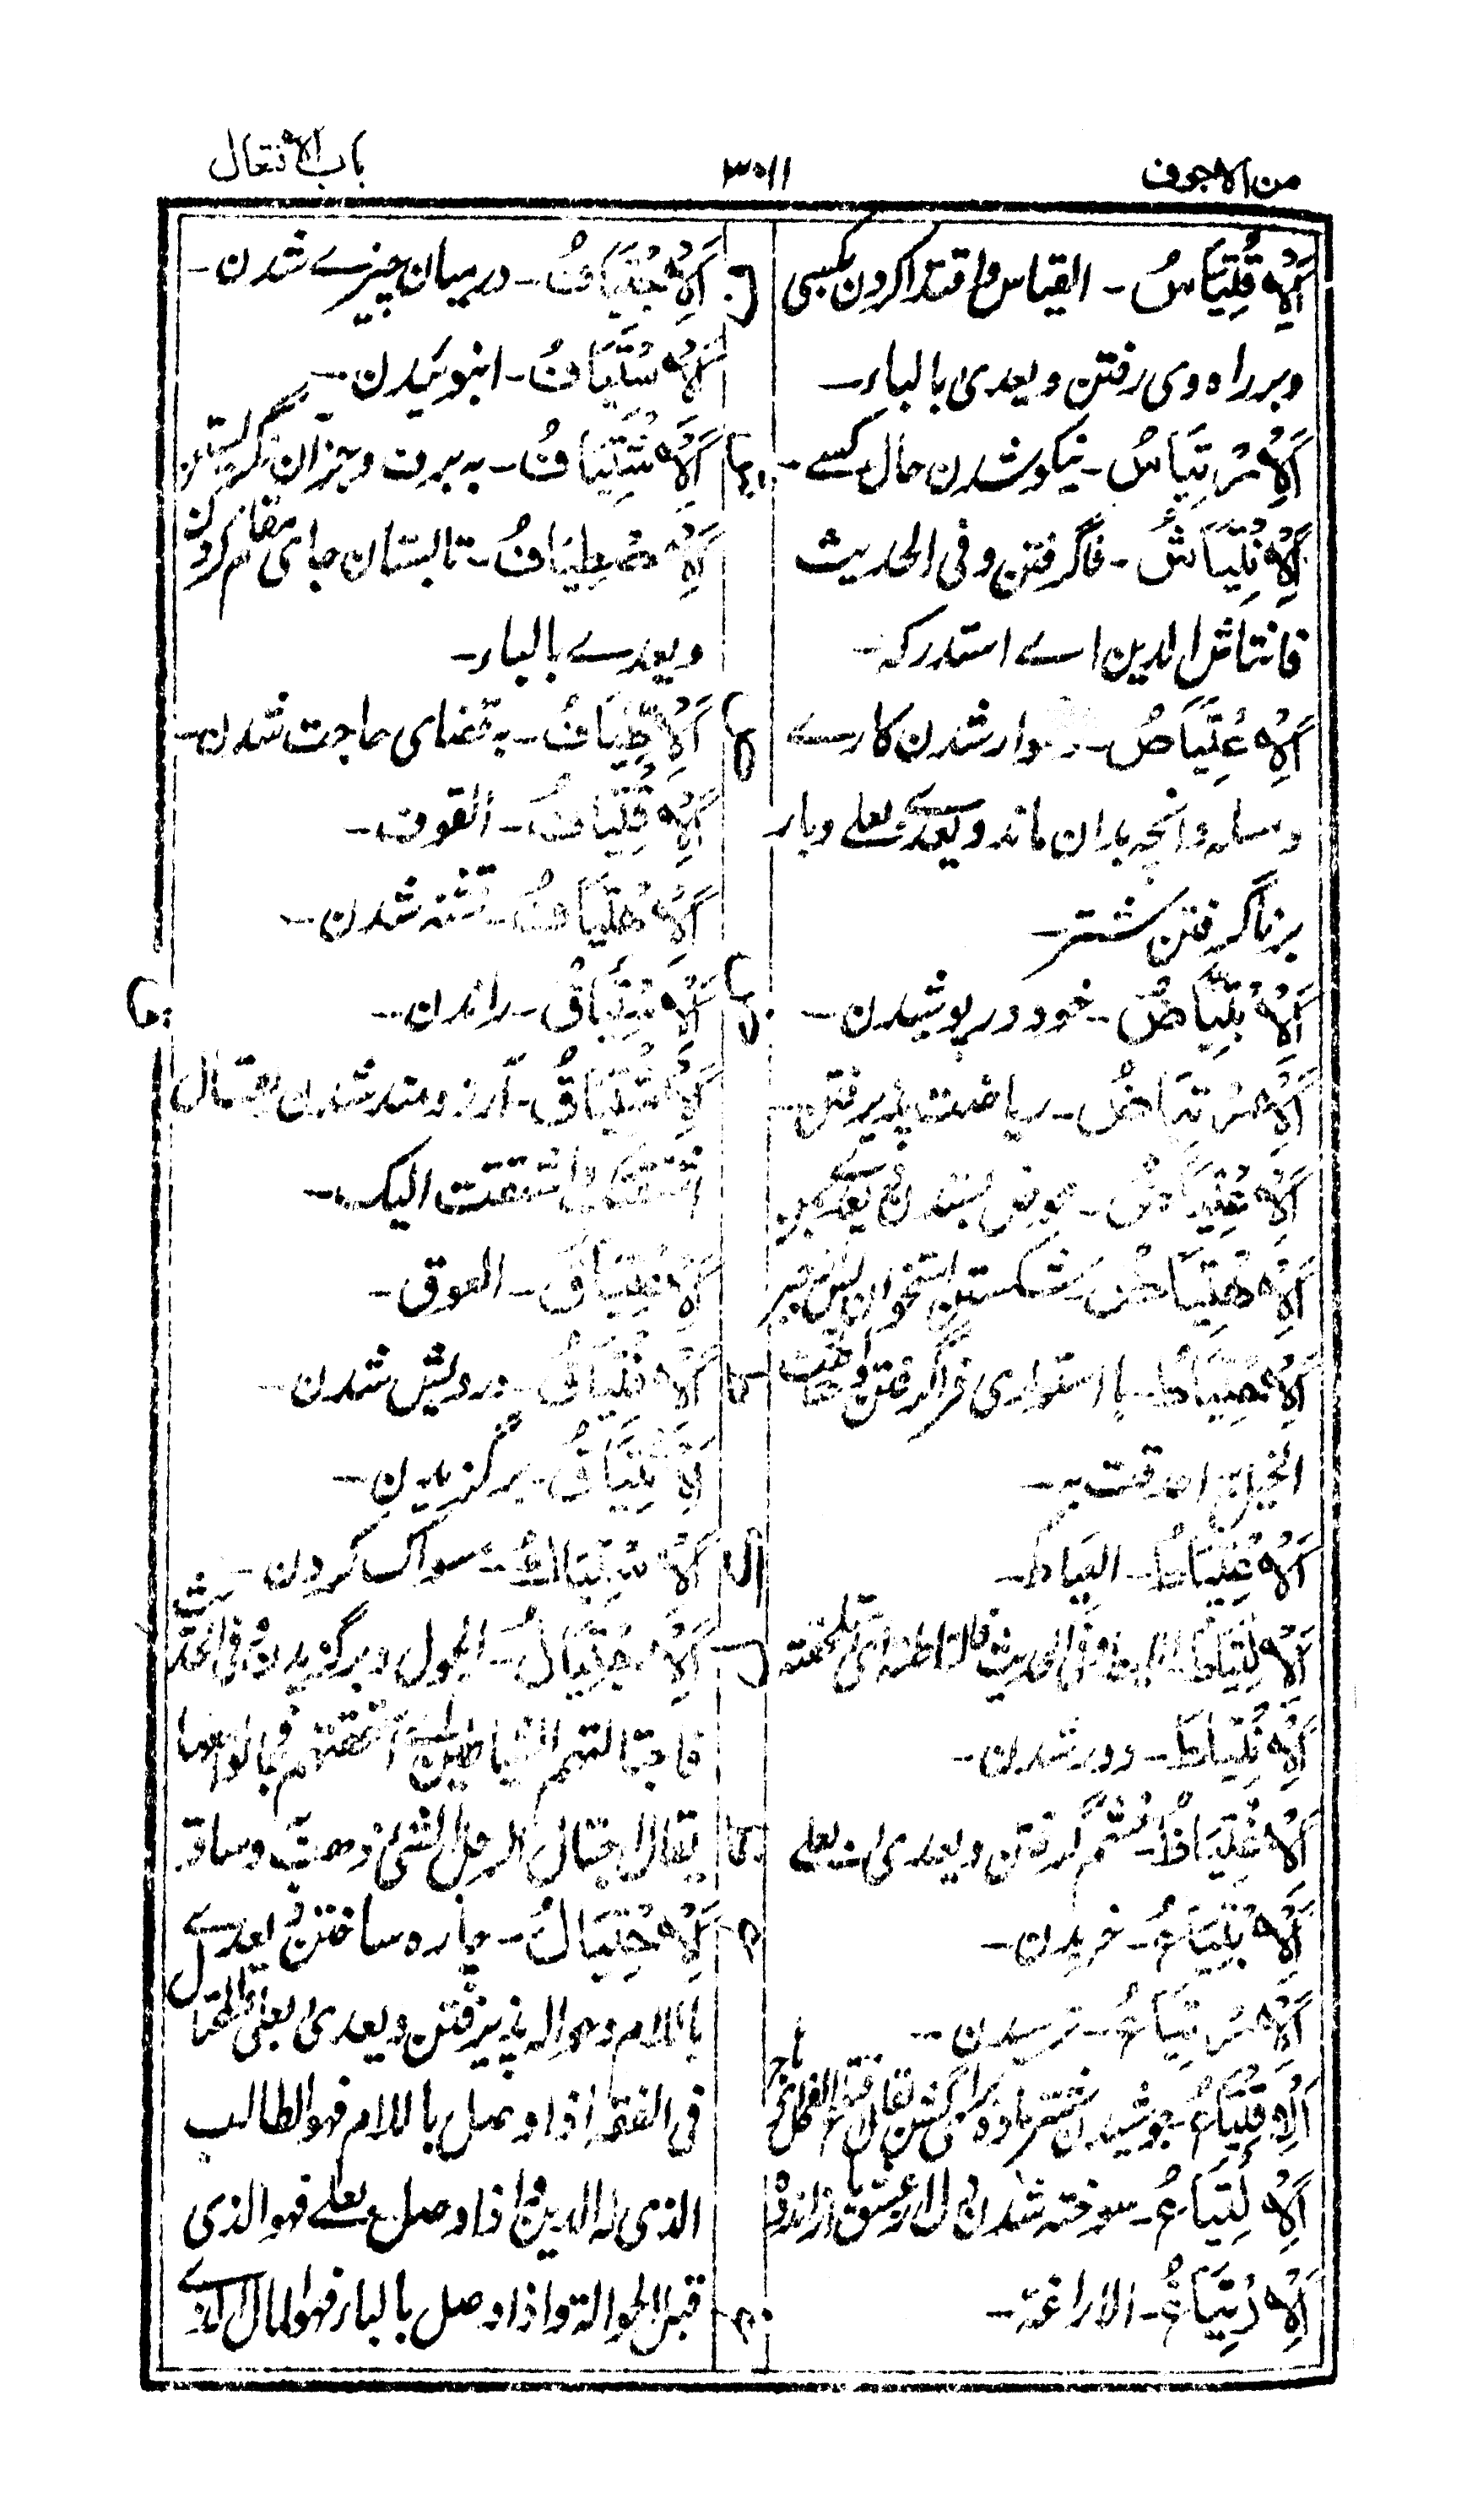 من الاجوف
باب الافتعال
اَلْاِقْتِيَاسُ - القياس و اقتدا کردن بکسی
و بر راه وی رفتن و یعدی بالباء -
اَلْاِرْتِيَاسُ - نیکو شدن حال کسے -
اَلْاِنْتِيَاشُ - فاگرفتن و فی الحدیث
فانتاش الدین اے استدرکه -
اَلْاِعْتِيَاصُ - شدن کارے
و انچه بدان ماند و یعدے بعلے و بار
برناگرفتن شتر -
اَلْاِبْتِيَاضُ - خود در پوشیدن -
اَلْاِرْتِيَاضُ - ریاضت پذیرفتن -
اَلْاِعْتِيَاضُ - عوض ستدن و یعدے بمن
اَلْاِهْتِيَاضُ - شکستن استخوان پس از جبر
اَلْاِحْتِيَاطُ - با استواری فراگرفتن و احتاطت
الخیل اے احدقت به -
اَلْاِعْتِيَاطُ - العیاط -
اَلْاِلْتِيَاطُ - و فی الحدیث
اَلْاِنْتِيَاطُ - دور شدن -
اَلْاِغْتِيَاظُ - خشم گرفتن و یعدی بعلے
اَلْاِبْتِيَاعُ - خریدن -
اَلْاِرْتِيَاعُ - ترسیدن -
اَلْاِقْتِيَاعُ -
اَلْاِلْتِيَاعُ - سوخته شدن دل از عشق یا از اندوه
اَلْاِرْتِيَاغُ - الاراغة -
اَلْاِجْتِيَافُ - درمیان چیزے شدن -
اَلْاِسْتِيَافُ - انبوئیدن -
اَلْاِشْتِيَافُ - به برق و جز آن نگریستن
اَلْاِصْطِيَافُ - تابستان جای مقام کردن
و یعدے بالباء -
اَلْاِطِّيَافُ - بقضای حاجت شدن -
اَلْاِقْتِيَافُ - القوف -
اَلْاِهْتِيَافُ - تشنه شدن -
اَلْاِسْتِيَاقُ - راندن -
اَلْاِشْتِيَاقُ - آرزومند شدن یقال
اشتقتک و اشتقت الیک -
اَلْاِعْتِيَاقُ - العوق -
اَلْاِفْتِيَاقُ - درویش شدن -
اَلْاِنْتِيَاقُ - برگزیدن -
اَلْاِسْتِيَاكُ - مسواک کردن -
اَلْاِجْتِيَالُ - الجول و برگزیدن و فی الحدیث
فاجتالتهم الشیاطین اے استخفتهم فجالوا معها
یقال اجتال الرجل الشیٔ ذهب و ساق
اَلْاِحْتِيَالُ - چاره ساختن و یعدے
باللام و حواله پذیرفتن و یعدی بعلی و المحتال
فی الفقه اذا وصل باللام فهو الطالب
الذی له الدین و اذا وصل بعلے فهو الذی
قبل الحوالة و اذا وصل بالباء فهو المال الذے